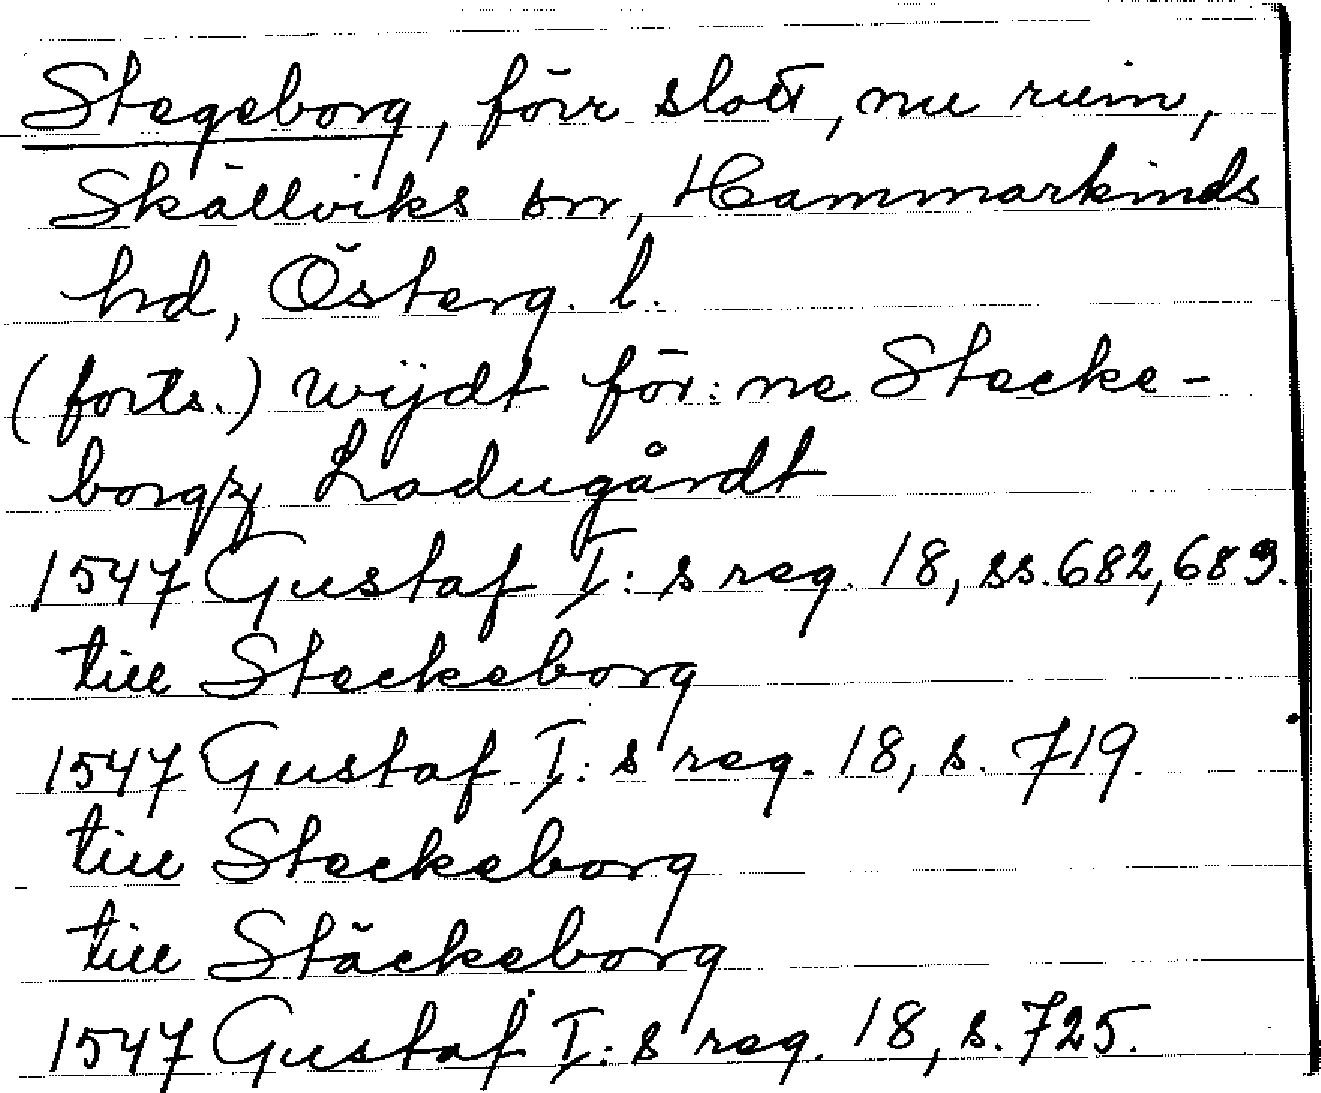 Stegeborg, förr slott, nu ruin,
Skällviks sn, Hammarkinds
hd, Österg. l.
(forts.) wijdt för:ne Stecke-
borgz Ladugårdt
1547 Gustaf I:s reg. 18, ss. 682, 689.
till Steckeborg
1547 Gustaf I:s reg. 18, s. 719.
till Steckeborg
till Stäckeborg
1547 Gustaf I:s reg. 18, s. 725.